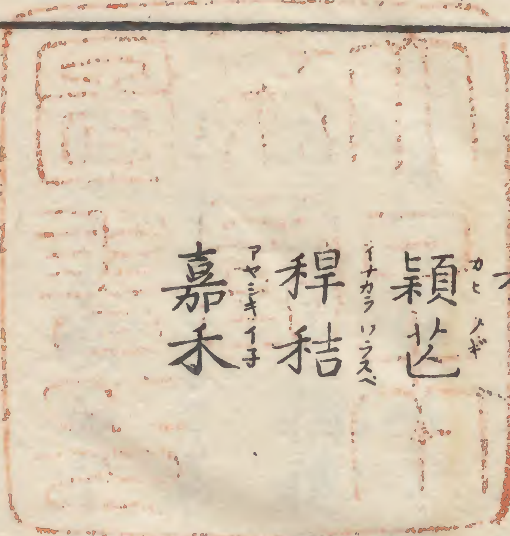 カヒ ノギ
穎芒
イナカラ ワラスベ
稈秸
アヤシキイ子
嘉禾